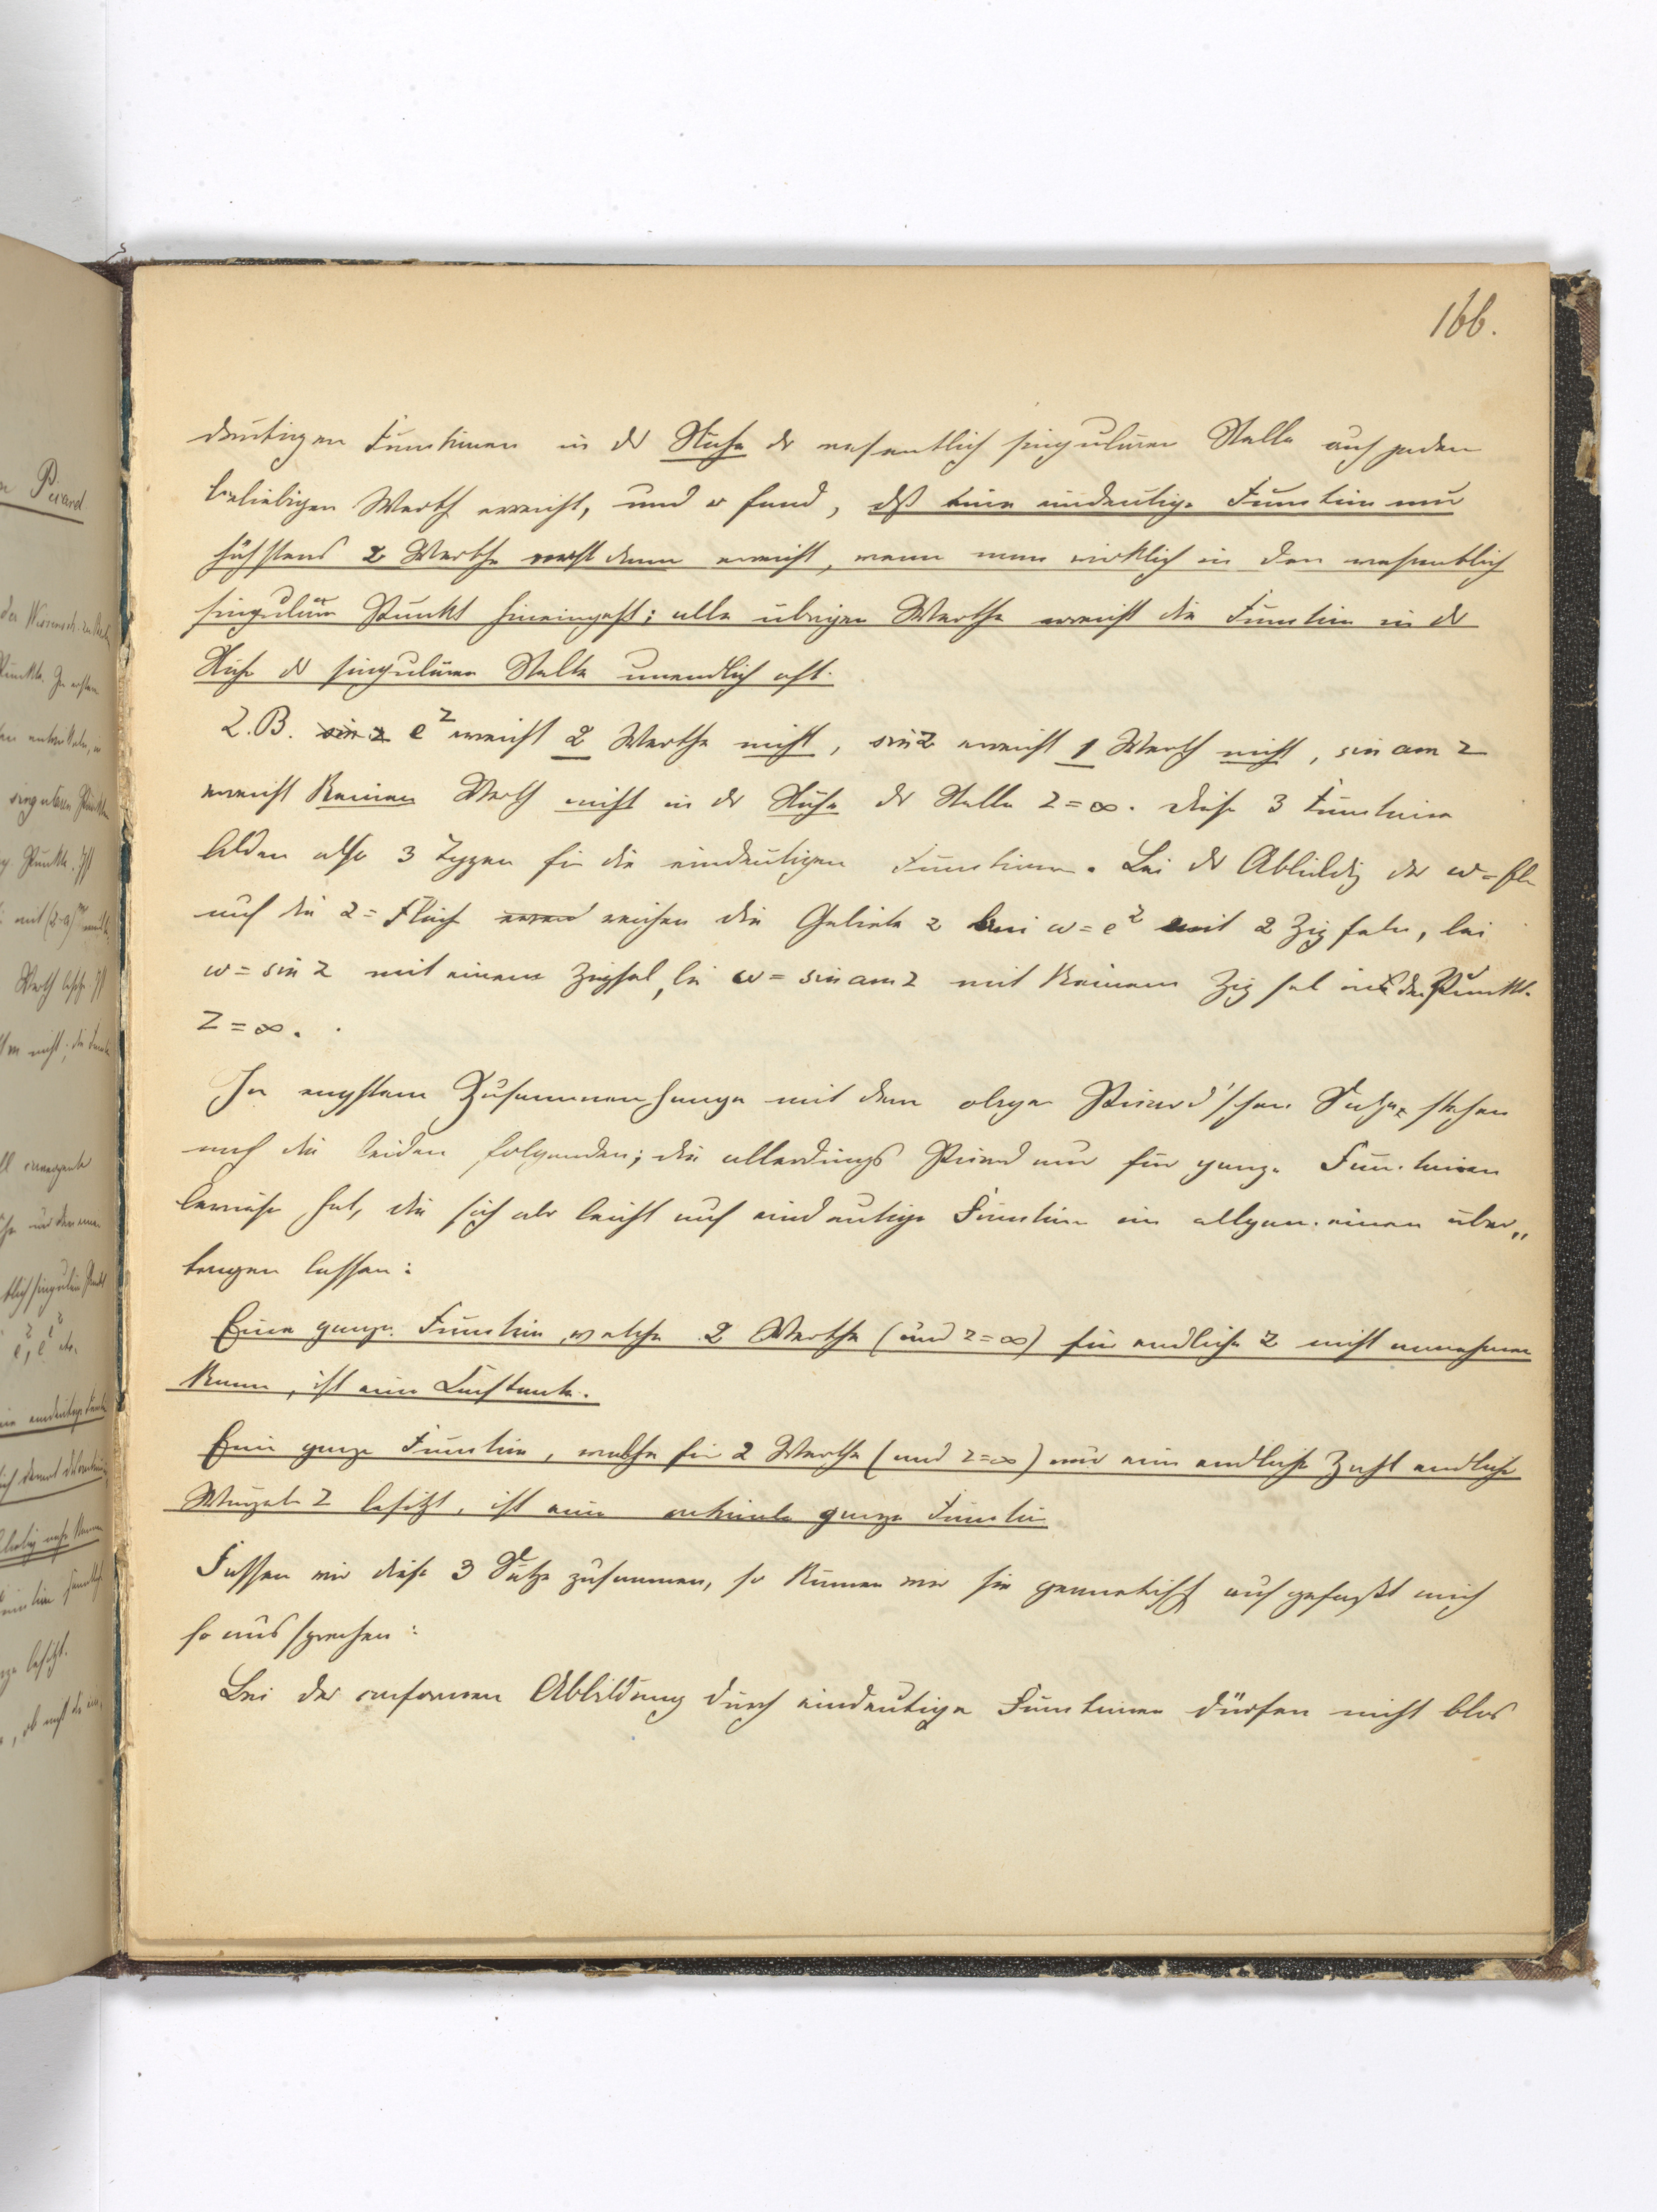 166.
deutigen Functionen in der Nähe der wesentlich singulären Stelle auch jeden
beliebigen Werth erreicht, und er fand, dß eine eindeutige Function nur
höchstens 2 Werthe erst dann erreicht, wenn man wirklich in den wesentlich
singulären Punkt hineingeht; alle übrigen Werthe erreicht die Function in der
Nähe der singulären Stelle unendlich oft.
Z.B. sin z e^z erreicht 2 Werthe nicht, sin z erreicht 1 Werth nicht, sin am z
erreicht keinen Werth nicht in der Nähe der Stelle z = ∞. Diese 3 Functionen
bilden also 3 Typen für die eindeutigen Functionen. Bei der Abbildg der w = Fl
auf die z = Fläche reichen die Gebiete z bei w = e^z mit 2 Zipfeln, bei
w = sin z mit einem Zipfel, bei w = sin am z mit keinem Zipfel in den Punkt
z = ∞.
In engstem Zusammenhange mit dem obigen Picard'schen Satze stehen
noch die beiden folgenden; die allerdings Picard nur für ganze Functionen
bewiesen hat, die sich aber leicht auf eindeutige Functionen im allgemeinen über„
tragen lassen:
Eine ganze Function, welche 2 Werthe (und z = ∞) für endliche z nicht annehmen
kann, ist eine Constante.
Eine ganze Function, welche für 2 Werthe (und z = ∞) nur eine endliche Zahl endliche
Wurzeln z besitzt, ist eine rationale ganze Function
Fassen wir diese 3 Sätze zusammen, so können wir sie geometrisch aufgefaßt auch
so aussprechen:
Bei der conformen Abbildung durch eindeutige Functionen dürfen nicht blos